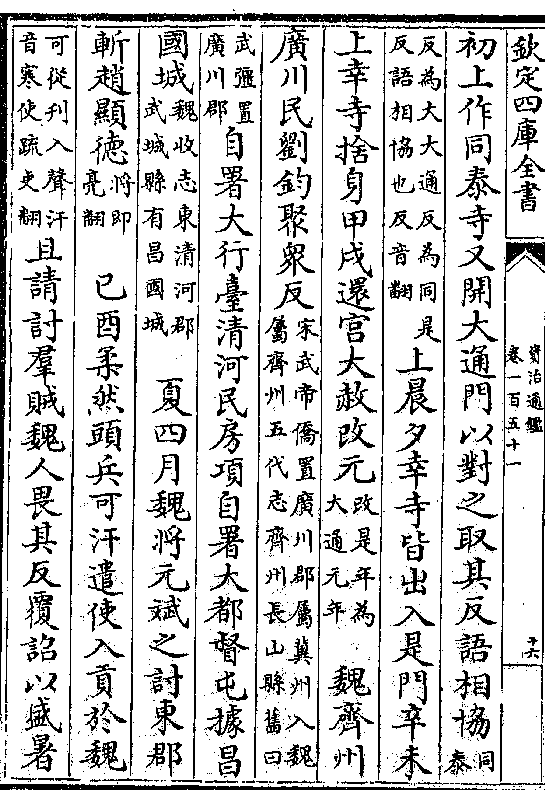 欽定四庫全書
資治通鑑
卷一百五十一
十六
初上作同泰寺又開大通門以對之取其反語相協同泰
反為大大通反為同是
反語相協也反音翻
上晨夕幸寺皆出入是門辛未
上幸寺捨身甲戌還宮大赦改元
改是年為
大通元年
魏齊州
廣川民劉鈞聚衆反
宋武帝僑置廣川郡屬冀州入魏
屬齊州五代志齊州長山縣舊曰
武彊置
廣川郡
自署大行臺清河民房項自署大都督屯據昌
國城
魏收志東清河郡
武城縣有昌國城
夏四月魏將元斌之討東郡
斬趙顯德
將即
亮翻
己酉柔然頭兵可汗遣使入貢於魏
可從刋入聲汗
音寒使疏吏翻
且請討羣賊魏人畏其反覆詔以盛暑